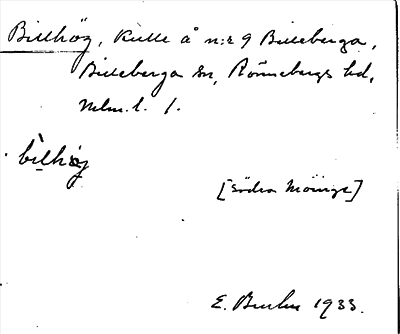 Billhög, Kulle å n:r 9 Billeberga,
Billeberga sn, Rönnebergs hd,
Mlm. l. 1.
bìlhög
[Södra Möinge]
E. 1933.